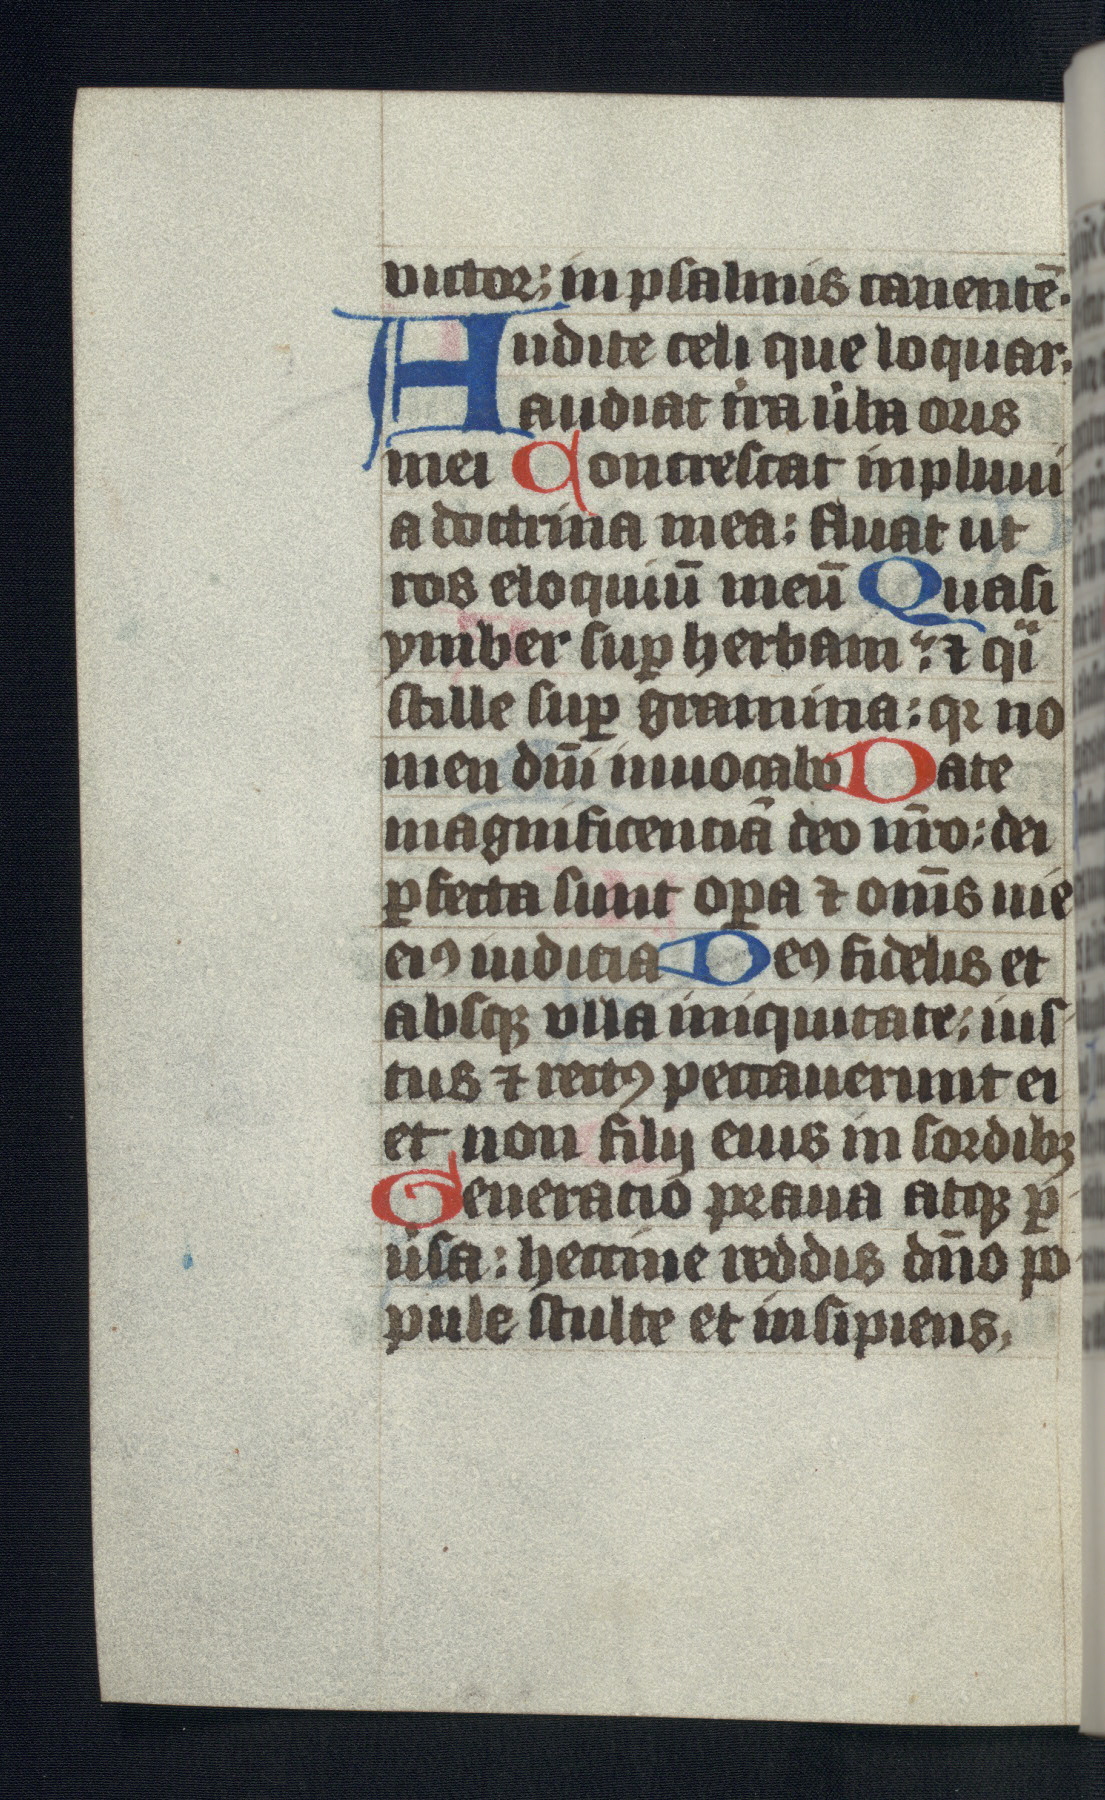 victor; in psalmis canentē.
Audite celi que loquar;
audiat t̾ra u̾ba oris
mei Concrescat in pluui
a doctrina mea: fluat ut
ros eloquiū meū Quasi
ymber suꝑ herbam: ⁊ qͣi
stille suꝑ gramina: qꝛ no
men dn̄i inuocabo Date
magnificenciā deo nr̄o: dei
ꝑfecta sunt oꝑa ⁊ om̄s uie
eiꝰ iudicia Deꝰ fidelis et
absqꝫ vlla iniquitate: ius
tus ⁊ rectꝰ peccauerunt ei
et non filij eius in sordibꝫ
Generatio praua atqꝫ ꝑ
u̾sa: heccine reddis dn̄o po
pule stulte et insipiens.